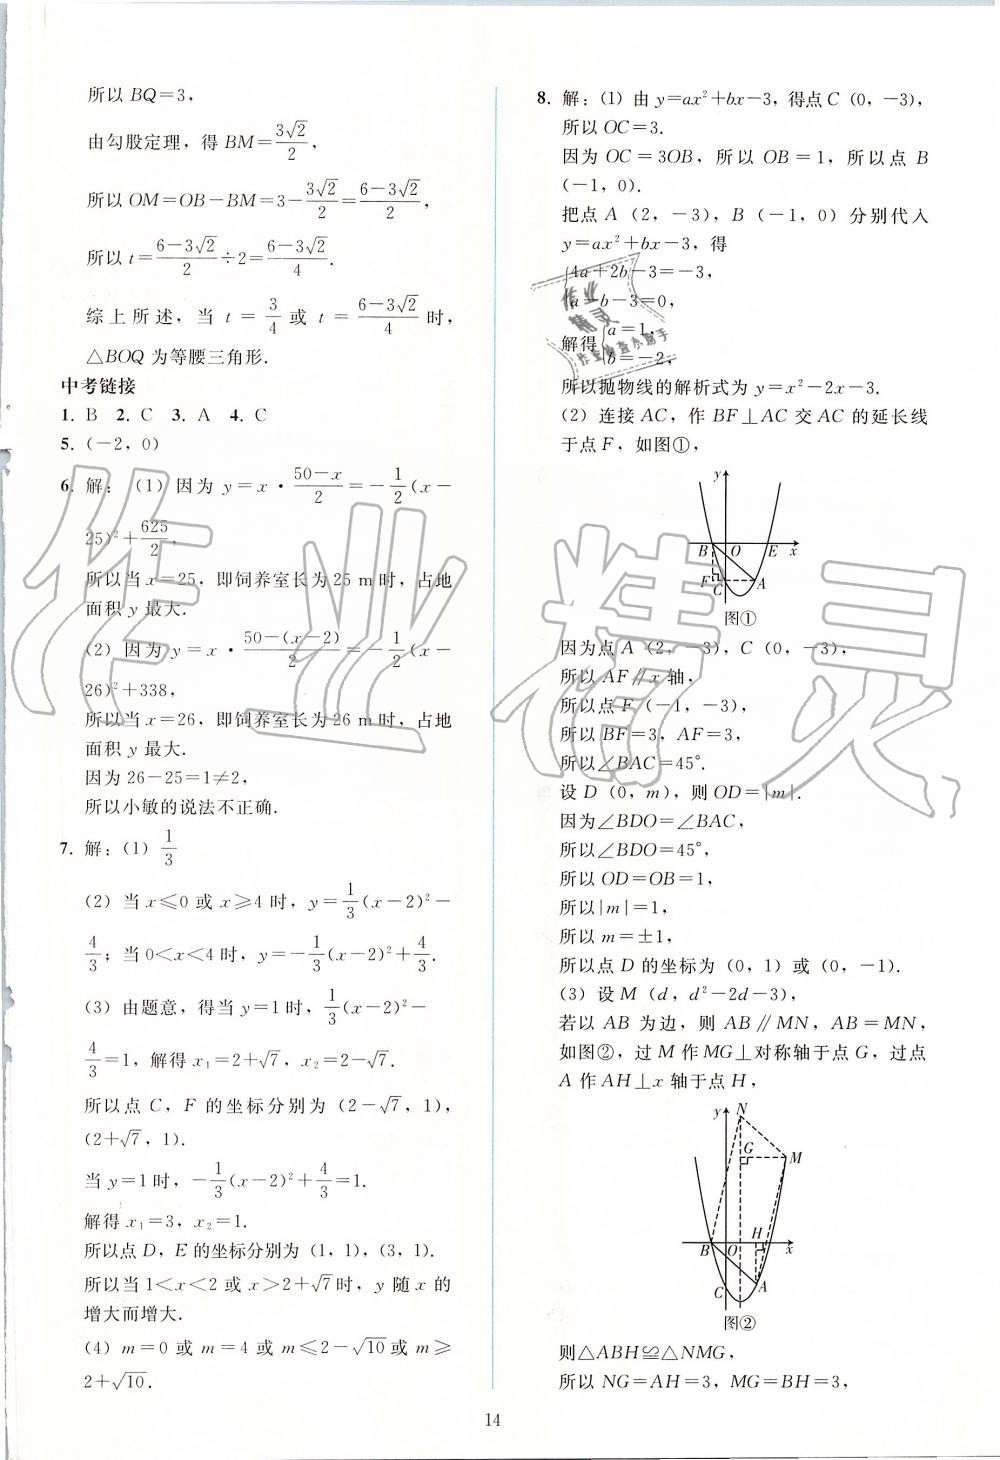 所以 BQ=3,
由勾股定理，得 BM=3√2/2,
所以 OM=OB-BM=3-3√2/2=(6-3√2)/2,
所以 t=(6-3√2)/2÷2=(6-3√2)/4.
综上所述，当 t=3/4 或 t=(6-3√2)/4 时,
△BOQ 为等腰三角形.
中考链接
1. B 2. C 3. A 4. C
5. (-2, 0)
6. 解：(1) 因为 y=x·(50-x)/2=-1/2(x-
25)²+625/2,
所以当 x=25，即饲养室长为 25 m 时，占地
面积 y 最大.
(2) 因为 y=x·(50-(x-2))/2=-1/2(x-
26)²+338,
所以当 x=26，即饲养室长为 26 m 时，占地
面积 y 最大.
因为 26-25=1≠2,
所以小敏的说法不正确.
7. 解：(1) 1/3
(2) 当 x≤0 或 x≥4 时，y=1/3(x-2)²-
4/3；当 0<x<4 时，y=-1/3(x-2)²+4/3.
(3) 由题意，得当 y=1 时，1/3(x-2)²-
4/3=1，解得 x₁=2+√7, x₂=2-√7.
所以点 C，F 的坐标分别为 (2-√7, 1),
(2+√7, 1).
当 y=1 时，-1/3(x-2)²+4/3=1.
解得 x₁=3, x₂=1.
所以点 D，E 的坐标分别为 (1, 1), (3, 1).
所以当 1<x<2 或 x>2+√7 时，y 随 x 的
增大而增大.
(4) m=0 或 m=4 或 m≤2-√10 或 m≥
2+√10.
8. 解：(1) 由 y=ax²+bx-3，得点 C (0, -3),
所以 OC=3.
因为 OC=3OB，所以 OB=1，所以点 B
(-1, 0).
把点 A (2, -3), B (-1, 0) 分别代入
y=ax²+bx-3，得
4a+2b-3=-3,
a-b-3=0,
解得 a=1,
b=-2,
所以抛物线的解析式为 y=x²-2x-3.
(2) 连接 AC，作 BF⊥AC 交 AC 的延长线
于点 F，如图①,
y
B O E x
F C A
图①
因为点 A (2, -3), C (0, -3),
所以 AF∥x 轴,
所以点 F (-1, -3),
所以 BF=3, AF=3,
所以∠BAC=45°.
设 D (0, m)，则 OD=|m|.
因为∠BDO=∠BAC,
所以∠BDO=45°,
所以 OD=OB=1,
所以|m|=1,
所以 m=±1,
所以点 D 的坐标为 (0, 1) 或 (0, -1).
(3) 设 M (d, d²-2d-3),
若以 AB 为边，则 AB∥MN, AB=MN,
如图②，过 M 作 MG⊥对称轴于点 G，过点
A 作 AH⊥x 轴于点 H,
y N
G M
H
B O x
C A
图②
则△ABH≌△NMG,
所以 NG=AH=3, MG=BH=3,
14
作业精灵
作业
精灵
作业检查小助手